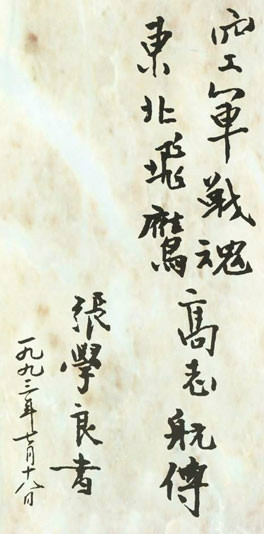 空军戰魂
東北飛鷹高志航傳
張學良書
一九九三年七月十八日